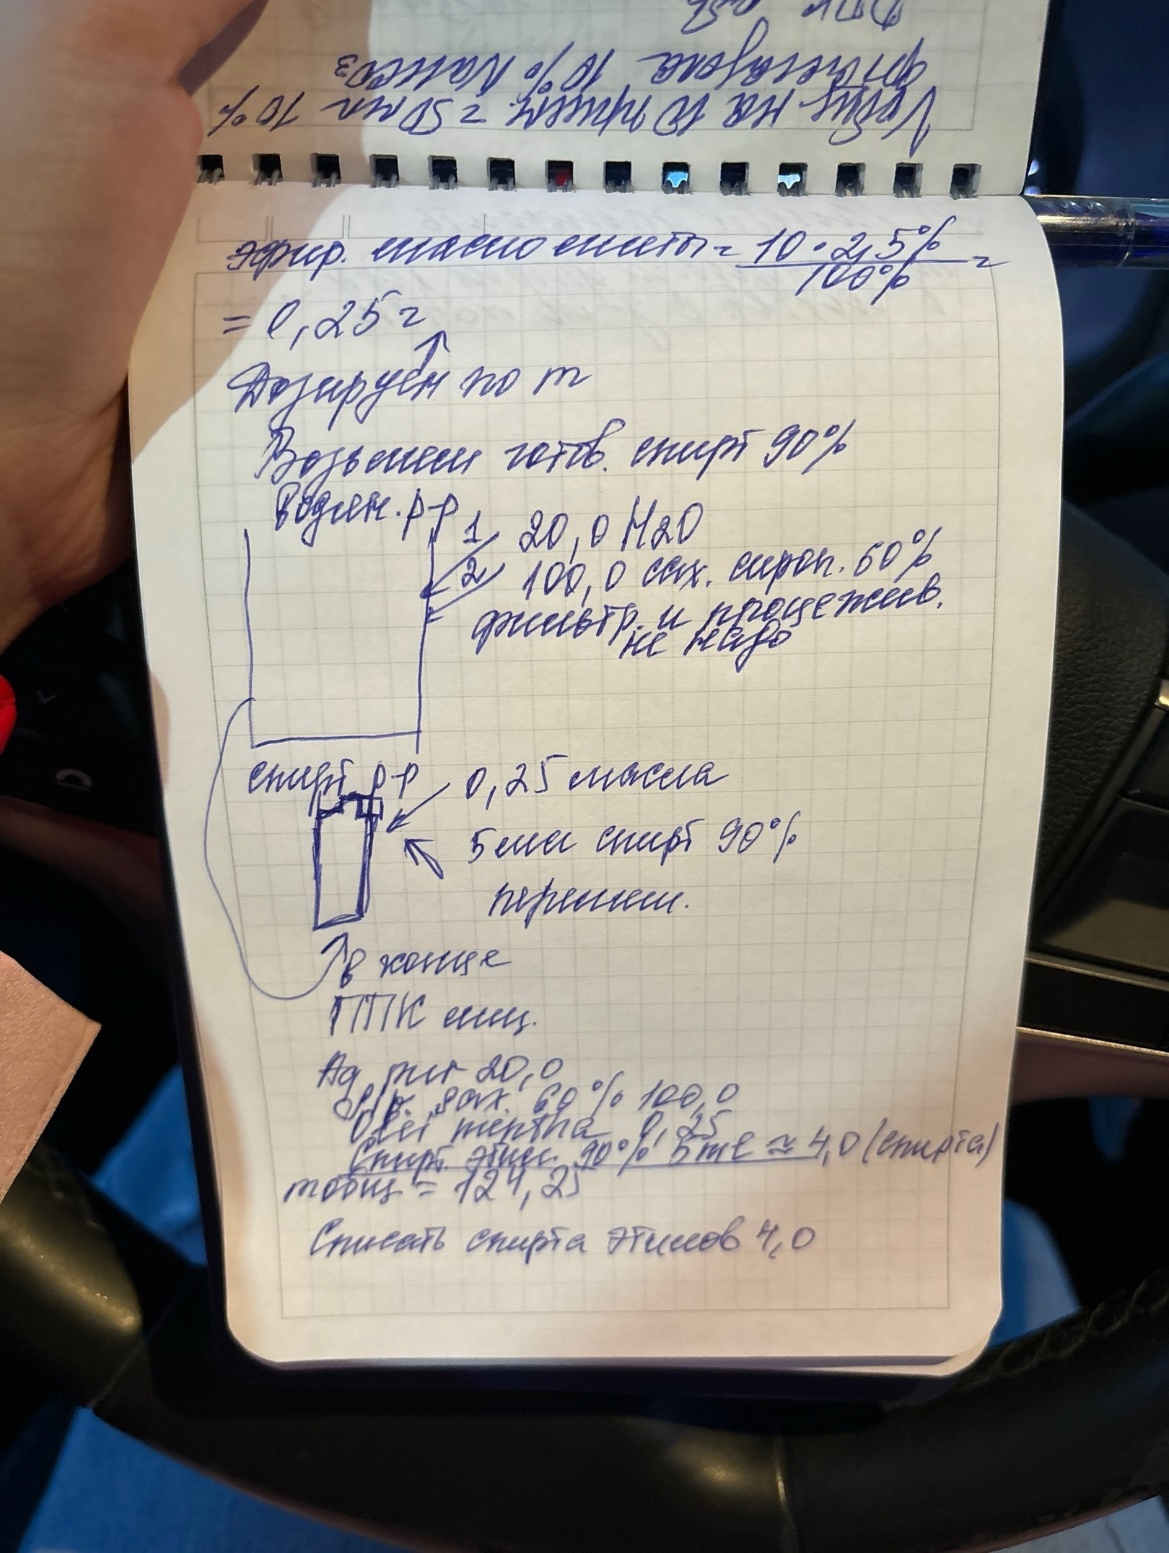 эфир. масло мяты = 10 • 2,5% / 100% =
= 0,25 г
Дозируем по m
Возьмем готов. спирт 90%
водян. р-р
1 20,0 H2O
2 100,0 сах. сироп. 60%
фильтр. и процежив.
не надо
спирт р-р
0,25 масла
5 мл спирт 90%
перемеш.
в конце
ППК лиц.
Aq pur 20,0
сах. 60% 100,0
Olei mentha 0,25
Спирт. этил. 90% 5 ml ≈ 4,0 (спирта)
m общ = 124,25
Списать спирта этилов 4,0
на 10 = 50 мл 10%
10% NaHCO3